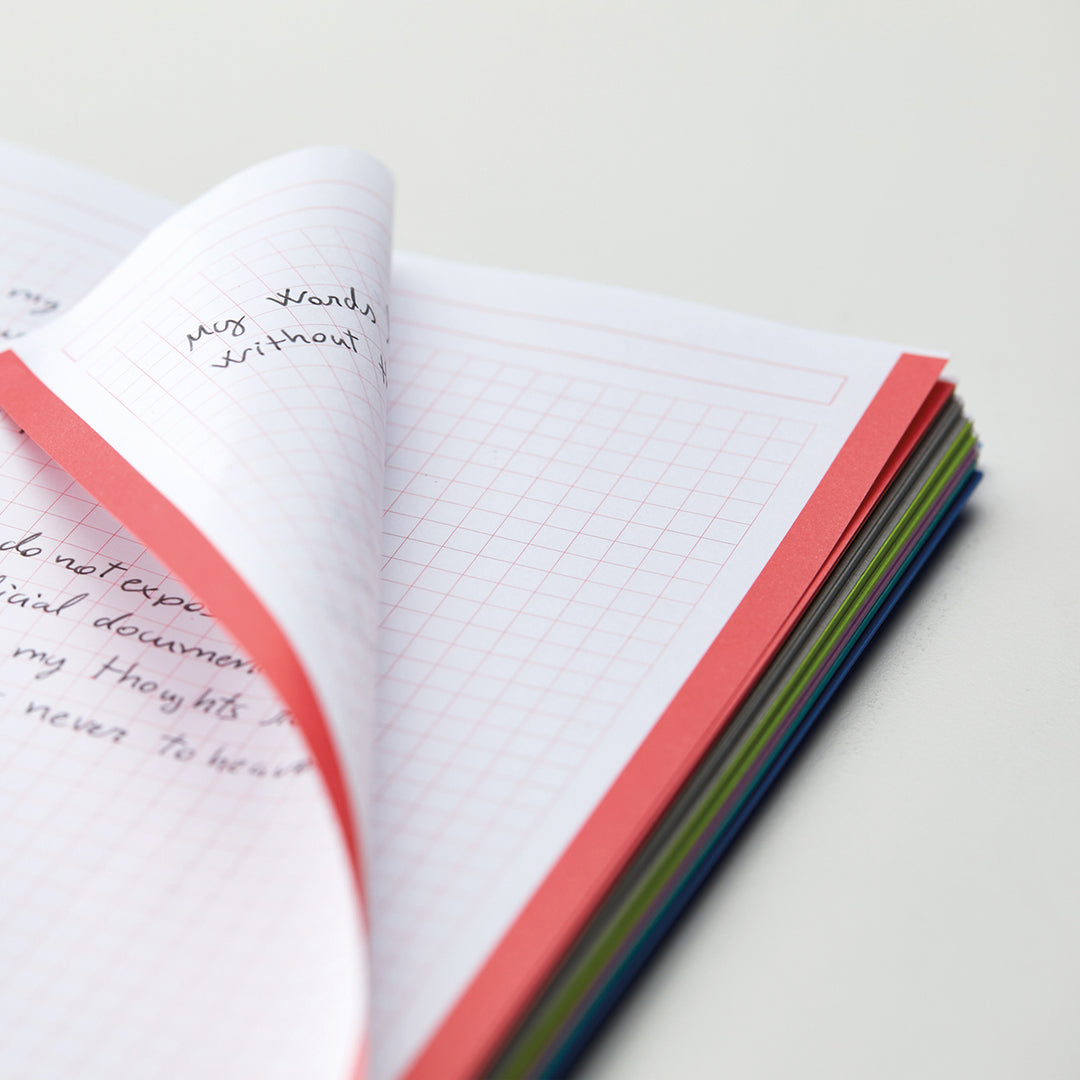 my
My words
without
do not expos
icial documen
my thoughts
never to hear